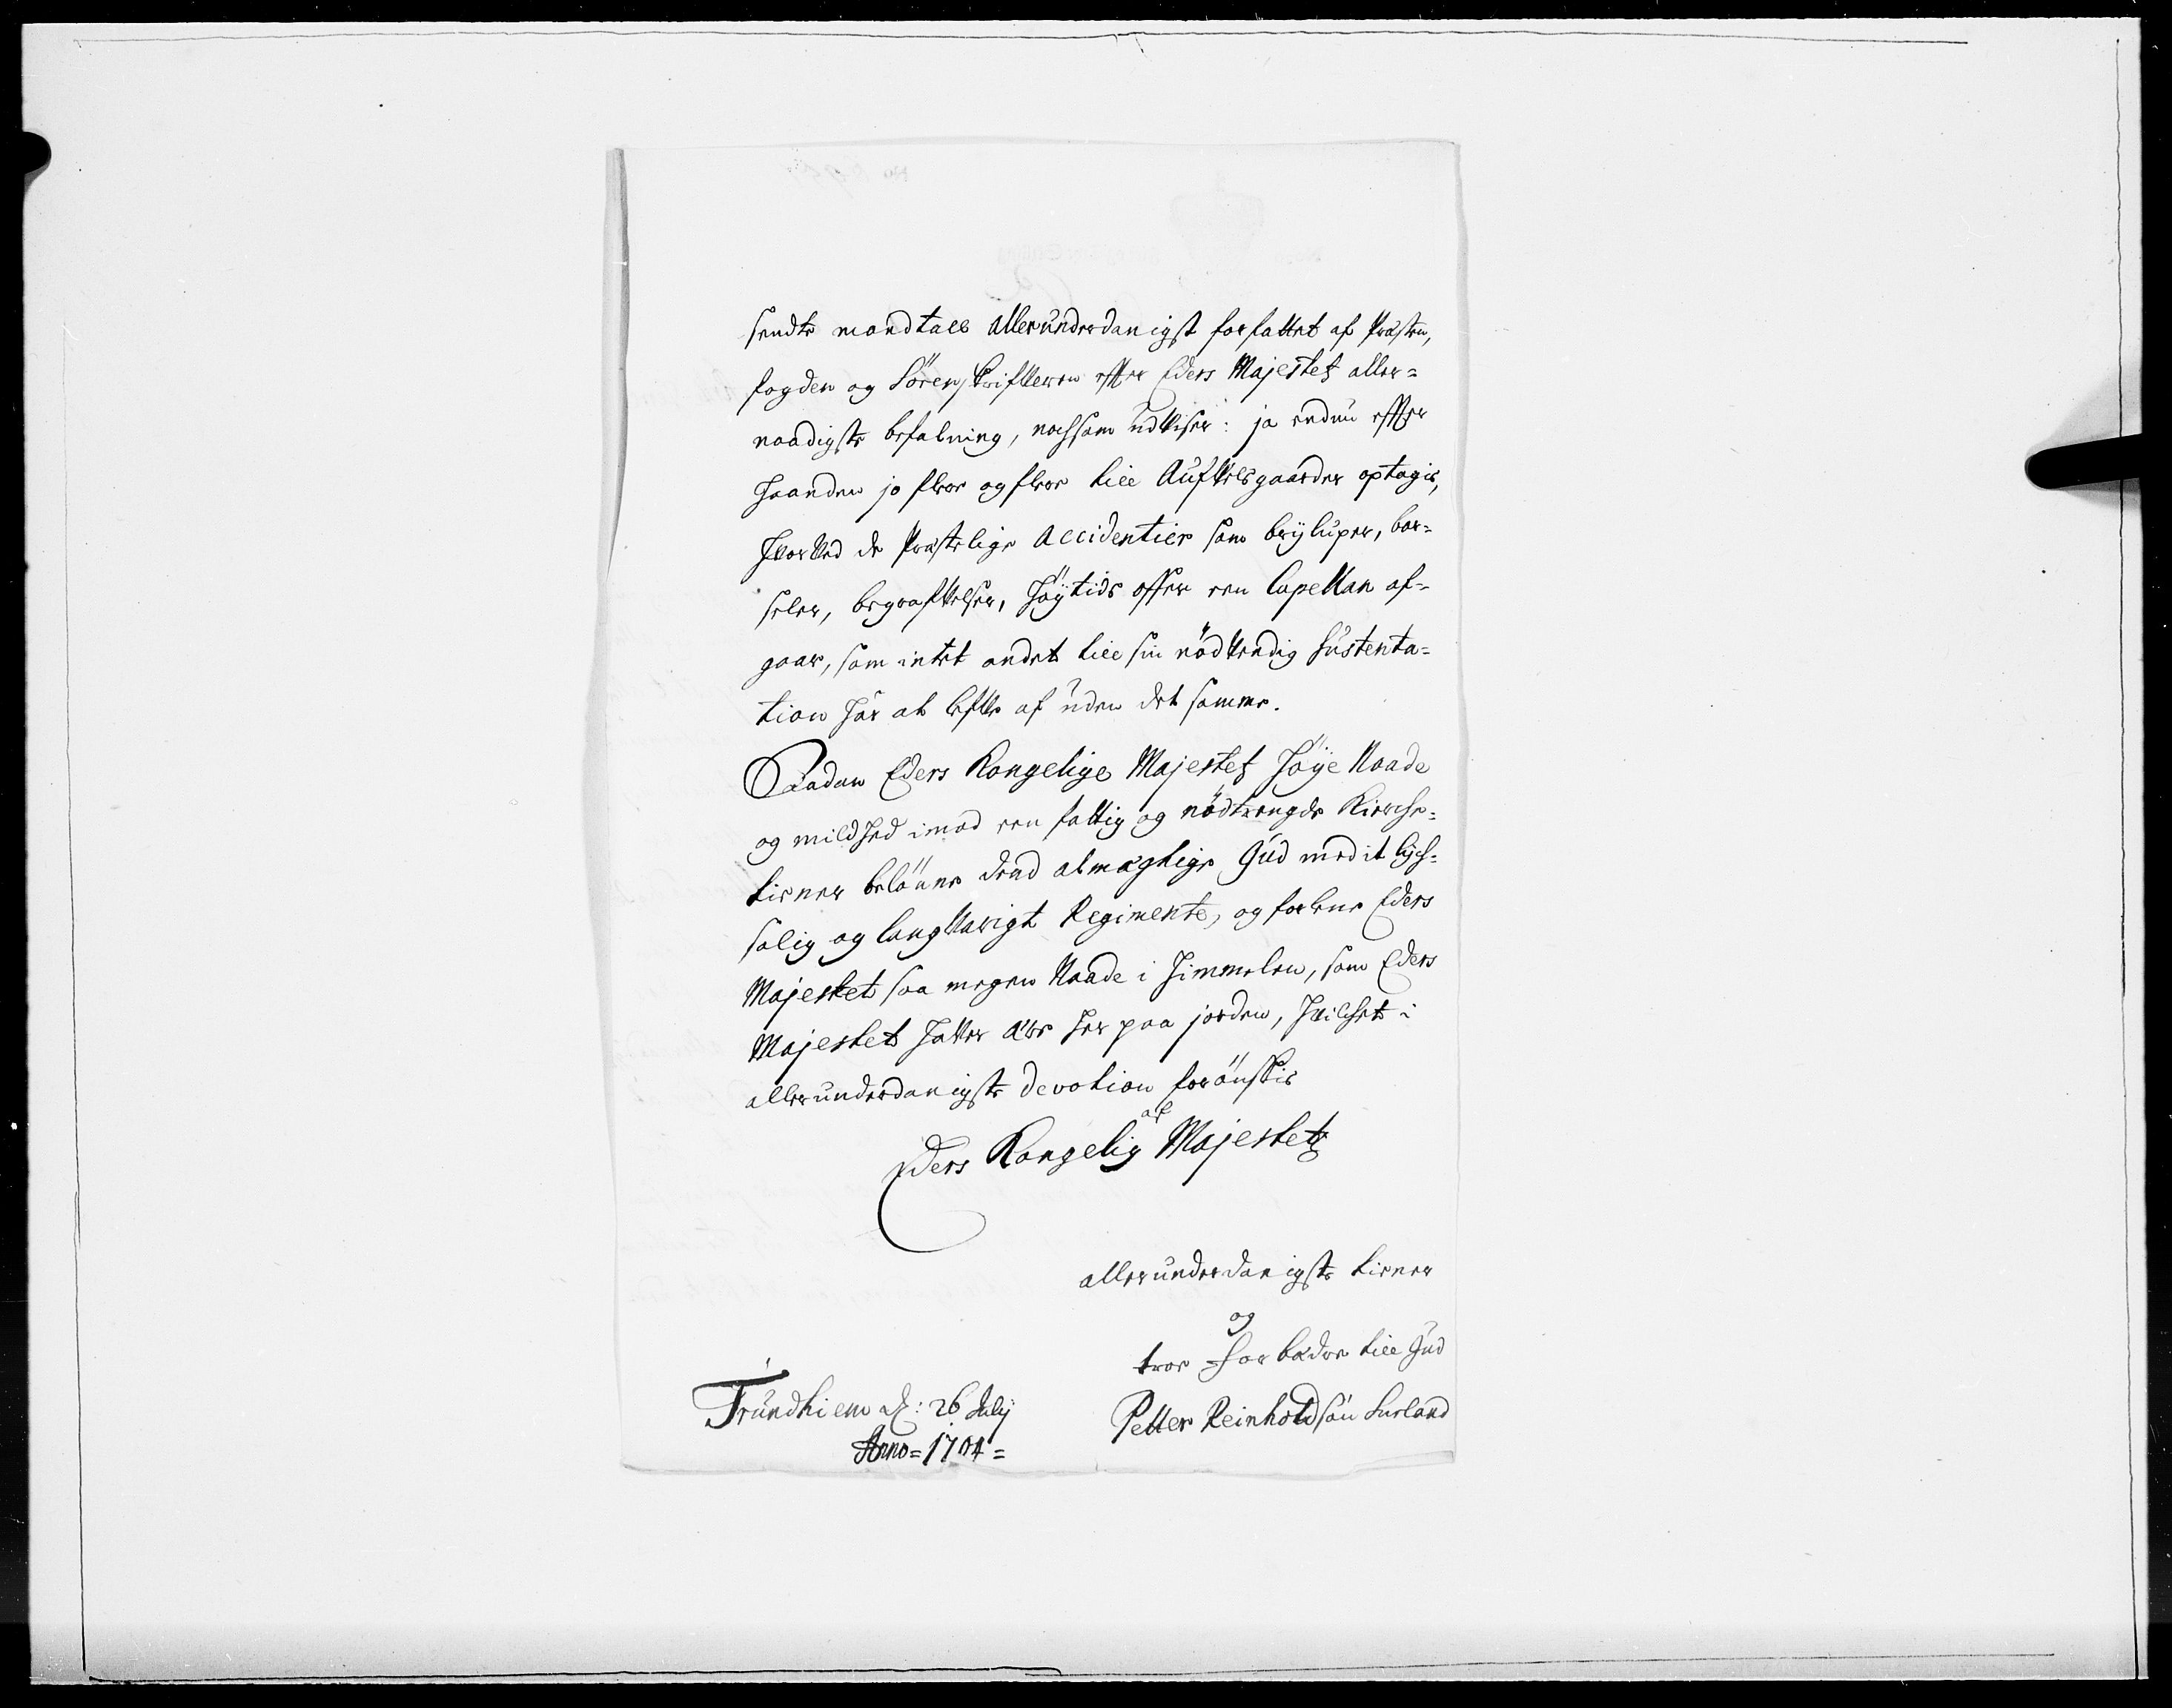 sendte mandtall allerunderdanigst forfattet af Præsten,
fogden og Sörenskrifveren effter Eders Majestetz aller=
naadigste befalning, nochsom udviser: ja endnu effter
haanden jo fleer og fleer till Aufvelsgaarder optagis,
hvorved de Præstelige Accidentier som bryluper, bar=
seler, begrafvelser, Höytids offer een Capellan af=
gaar, som intet andet till sin nödvendig Sustenta=
tion har at lefve af uden det samme.
Saadan Eders Kongelige Majestetz Höÿe Naade
og mildhed imod een fattig og nödtrengde Kirche=
tiener belönne dend almægtige Gud med it lych=
salig og langvarigt Regimente, og forlene Eders
Majestet saa megen Naade i Himmelen, som Eders
Majestet hafver Ære her paa jorden, hvilchet i
allerunderdanigste devotion forönskis
af
Eders Kongelig Majestetz
allerunderdanigste tiener
og
troe forbedere till Gud
Petter Reinholdsön Surland
Trundhiem d: 26 Julij
Anno=1704=